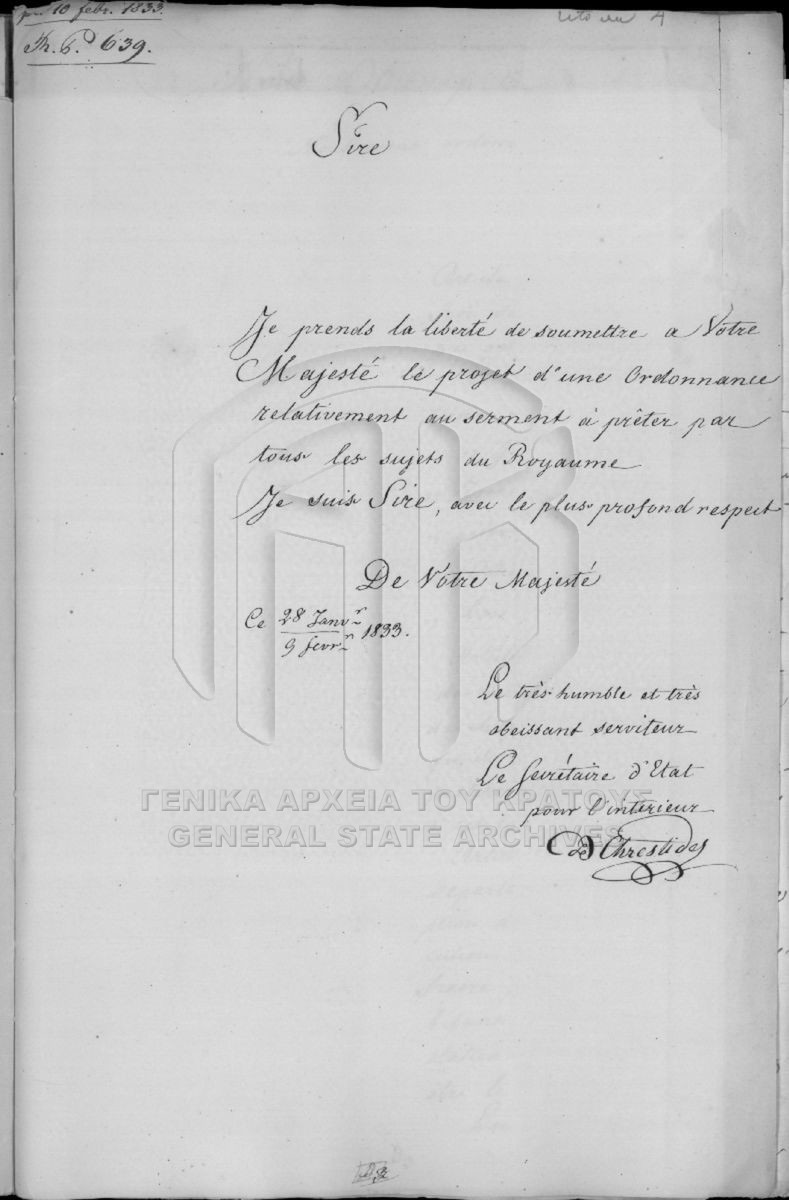 10 febr. 1833.
639.
Sire
Je prends la liberté de soumettre a Votre
Majesté le projet d'une Ordonnance
relativement au serment à prêter par
tous les sujets du Royaume
Je suis Sire, avec le plus profond respect
De Votre Majesté
Ce 28 Janvr / 9 fevrr 1833.
Le très humble et très
obeissant serviteur
Le Secrétaire d'Etat
pour l'interieur
Chrestides
ΓΕΝΙΚΑ ΑΡΧΕΙΑ ΤΟΥ ΚΡΑΤΟΥΣ
GENERAL STATE ARCHIVES